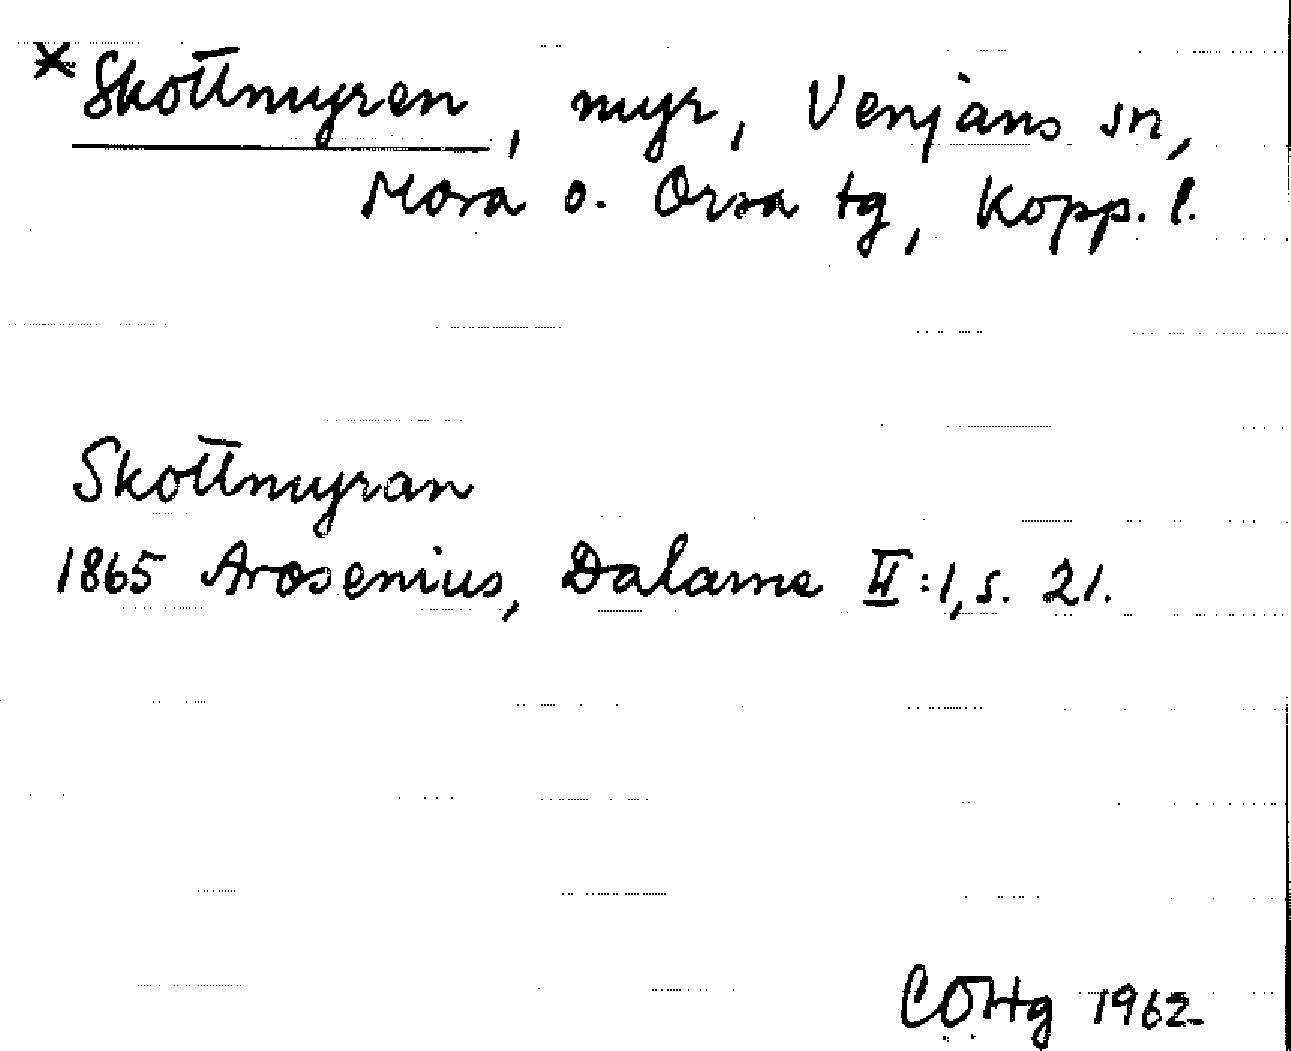 *Skottmyren, myr, Venjans sn,
Mora o. Orsa tg, Kopp. l.
Skottmyran
1865 Arosenius, Dalarne II:1, s. 21.
COHg 1962